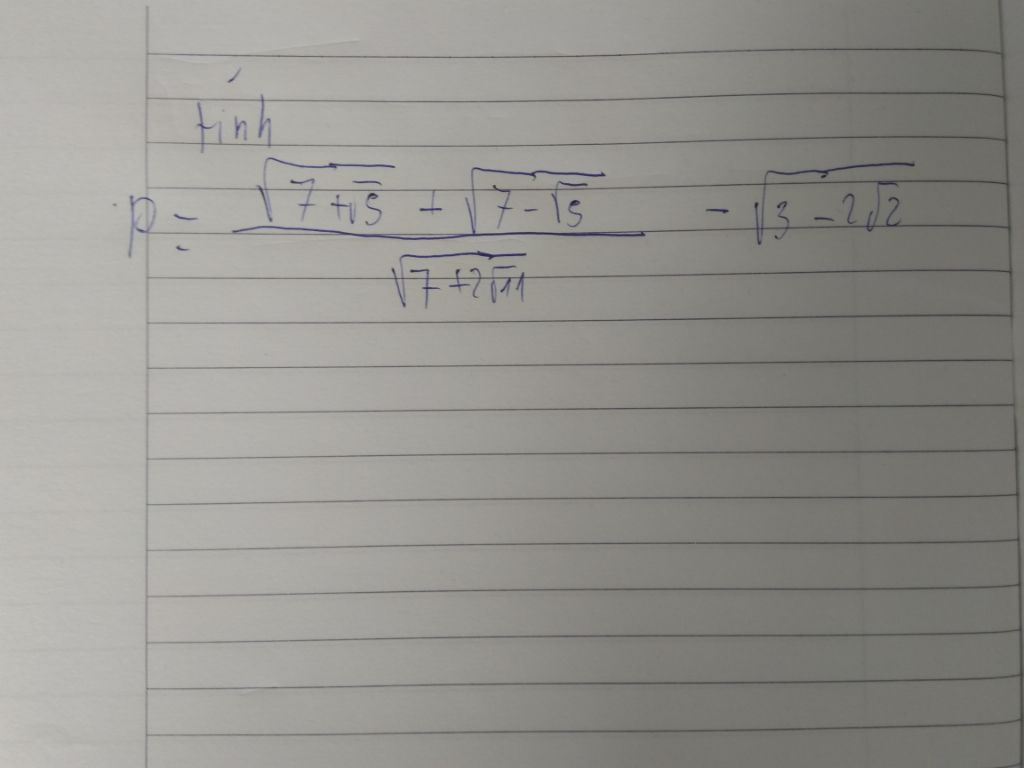 tính
P = \frac{\sqrt{7+\sqrt{5}} + \sqrt{7-\sqrt{5}}}{\sqrt{7+2\sqrt{11}}} - \sqrt{3-2\sqrt{2}}